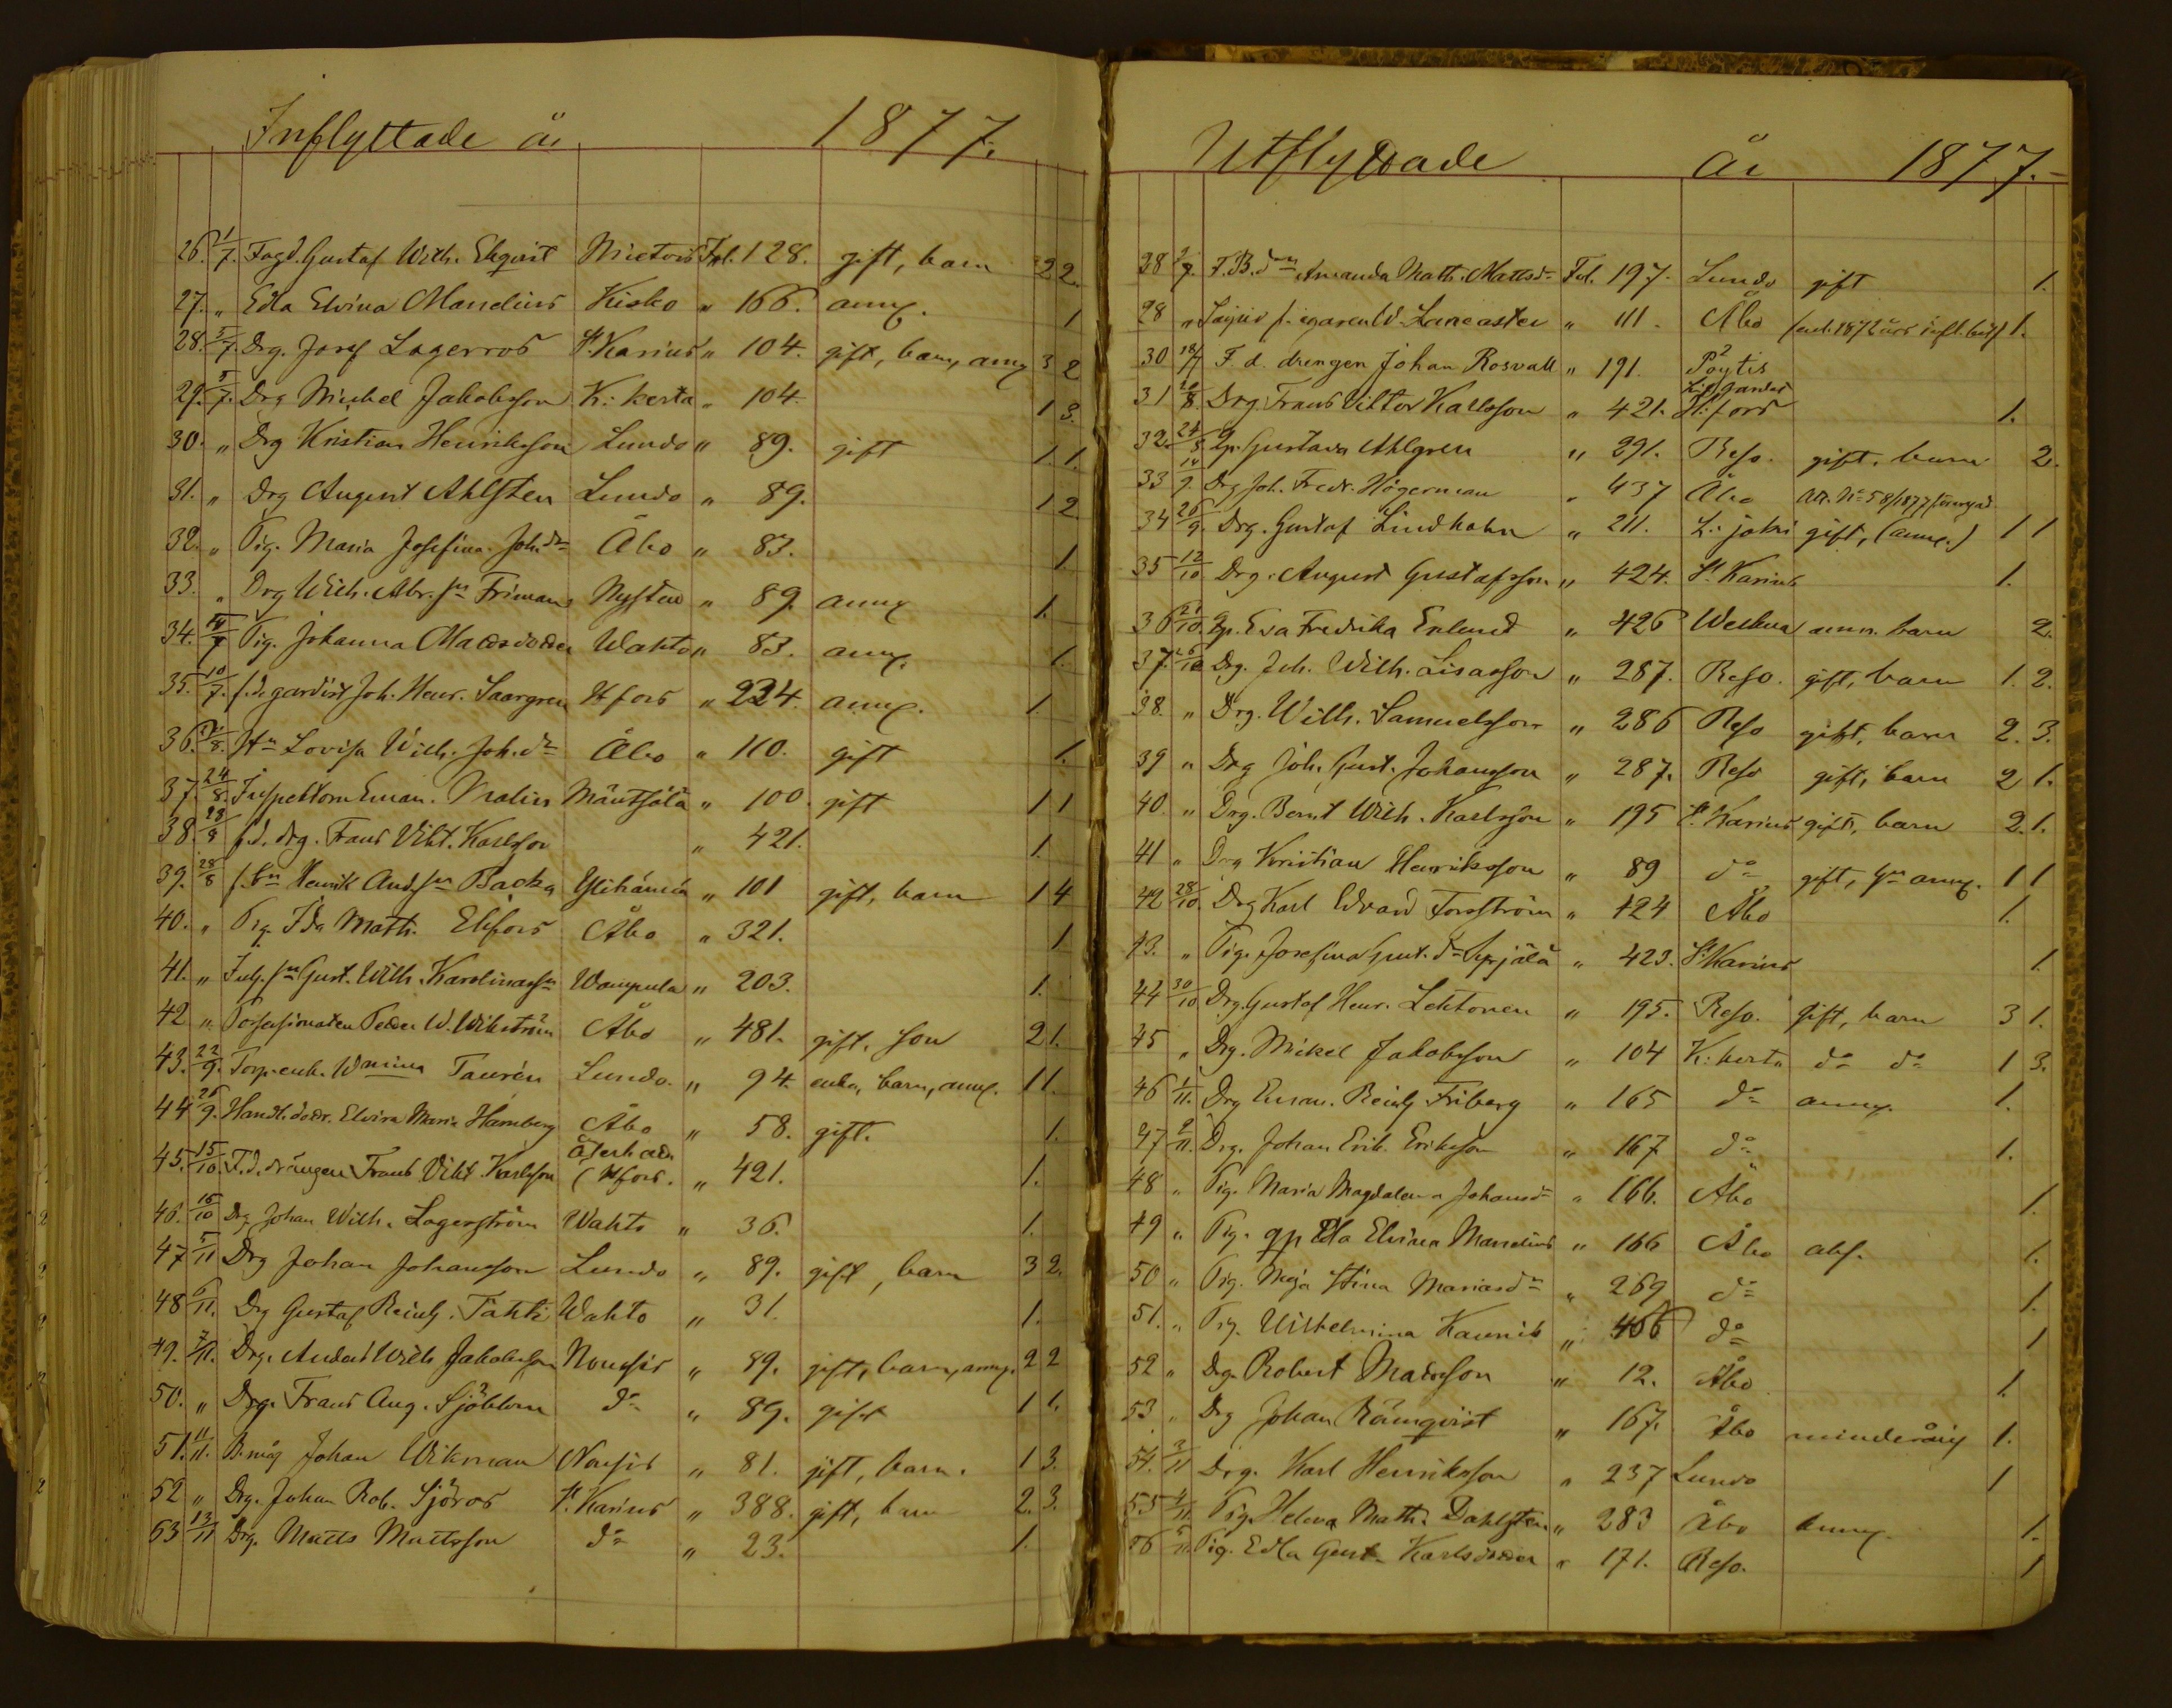 Inflyttade år 1877.
26. 1/7. Fogd. Gustaf Wilh. Ekqvist Mietois Fol. 128. gift, barn 2 2.
27. " Edla Elvina Mandelius Kisko " 166. anng. 1
28. 5/7. Drg. Josef Lagerros St Karins " 104. gift, barn, anng 3 2
29. 5/7. Drg Mickel Jakobsson K: kerta " 104. 1 3.
30. " Drg Kristian Henriksson Lundo " 89. gift 1. 1.
31. " Drg August Ahlsten Lundo " 89. 1 2
32. " Pig. Maria Josefina Joh.dr Åbo " 83. 1
33. " Drg Wilh. Abr.sn Friman Nystad " 89. anng 1.
34. /7 Pig. Johanna Matsdotter Wahto " 83. anng. 1.
35. 10/7. f.d. gardist Joh. Henr. Saargren Hfors " 224. anng. 1.
36. /8. Hn Lovisa Wilh. Joh.dr Åbo " 110. gift 1.
37. 24/8. Inspektoren Eman. Malin Mäntsälä " 100. gift 1 1
38. 28/8 f.d. drg. Frans Vikt. Karlsson " 421. 1.
39. 28/8 f.bn Henrik And.sn Backa Ylihämiä " 101 gift, barn 1 4
40. " Pig. Ida Math. Ekfors Åbo " 321. 1
41. " Gust. Wilh. Karolinasn Wampula " 203. 1.
42 " Possessionaten Peter W. Wikström Åbo " 481. gift. son 2 1.
43. 22/9. Torp.enk. Wmina Taurén Lundo. " 94. enka, barn, anng. 1 1.
44 26/9. Handl.dotr. Elvira Maria Hamberg Åbo " 58. gift. 1.
45. 15/10. F.d. drängen Frans Vikt. Karlsson (Hfors. " 421. 1.
46. 16/10 Drg Johan Wilh. Lagerström Wahto " 36. 1.
47 5/11 Drg Johan Johansson Lundo " 89. gift, barn 3 2.
48 6/11. Drg Gustaf Reinh. Tähti Wahto " 31. 1.
49. 7/11. Drg. Anders Wilh Jakobsson Nousis " 89. gift, barn, anng. 2 2
50. " Drg. Frans Aug. Sjöblom do " 89. gift 1 1.
51. 11/11. B.måg Johan Wikman Nousis " 81. gift, barn. 1 3.
52 " Drg. Johan Rob. Sjöros St Karins " 388. gift, barn 2. 3.
53 13/11 Drg. Matts Mattsson do " 23. 1.
Utflyttade år 1877.
28 2/7. F.B.dn Amanda Math. Mattsdr Fol. 197. Lundo gift 1.
28 " W. Lancaster " 111. Åbo 1.
30 18/7 F. d. drengen Johan Rosvall " 191. Pöytis
31 20/8. Drg. Frans Viktor Karlsson " 421. H:fors 1.
32. 24/8 Qp. Gustava Ahlgren " 291. Reso. gift, barn 2.
33 14/9. Drg Joh. Fredr. Högerman " 437 Åbo
34 26/9. Drg. Gustaf Lindholm " 211. L: jokis gift, (anng.) 1 1
35 12/10 Drg. August Gustafsson " 424. St Karins 1.
36 21/10. Qp. Eva Fredrika Enlund " 426 Wehmaa barn 2.
37. /10 Drg. Joh. Wilh. Lisasson " 287. Reso. gift, barn 1. 2.
38. " Drg. Wilh. Samuelsson " 286 Reso gift, barn 2. 3.
39 " Drg Joh. Gust. Johansson " 287. Reso gift, barn 2 1.
40. " Drg. Bernt Wilh. Karlsson " 195 St Karins gift, barn 2. 1.
41 " Drg Kristian Henriksson " 89 do gift, anng. 1 1
42 28/10. Drg Karl Edvard Forsström " 424 Åbo 1.
43. " Pig. Josefina Gust.dr " 423. St Karins 1.
44 30/10 Drg. Gustaf Henr. Lehtonen " 195. Reso. gift, barn 3 1.
45 " Drg. Mikel Jakobsson " 104 K: kerta do do 1 3.
46 1/11. Drg Eman. Reinh Friberg " 165 do anng. 1.
47 2/11. Drg. Johan Erik Eriksson " 167 do 1.
48 " Pig. Maria Magdalena Johansdr " 166. Åbo 1.
49 " Pig. qp Edla Elvina Mandelius " 166 Åbo abs. 1.
50 " Pig. Maja Stina Mariasdr " 269 do 1.
51. " Pig. Wilhelmina Kaunis " 466 do 1
52 " Drg. Robert Matsson " 12. Åbo 1.
53 " Drg Johan Rämqvist " 167. Åbo minderårig 1.
54. 3/11 Drg. Karl Henriksson " 237 Lundo 1
55 4/11. Pig. Helena Math. Dahlsten " 283 Åbo anng. 1.
56 5/11. Pig. Edla Gust. Karlsdotter " 171. Reso. 1